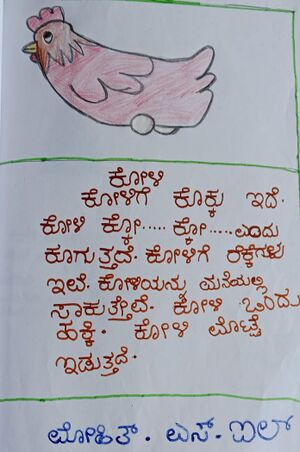 ಕೋಳಿ
ಕೋಳಿಗೆ ಕೊಕ್ಕು ಇದೆ.
ಕೋಳಿ ಕ್ಕೋ..... ಕ್ಕೋ..... ಎಂದು
ಕೂಗುತ್ತದೆ. ಕೋಳಿಗೆ ರೆಕ್ಕೆಗಳು
ಇವೆ. ಕೋಳಿಯನ್ನು ಮನೆಯಲ್ಲಿ
ಸಾಕುತ್ತೇವೆ. ಕೋಳಿ ಒಂದು
ಹಕ್ಕಿ. ಕೋಳಿ ಮೊಟ್ಟೆ
ಇಡುತ್ತದೆ.
ಮೋಹಿತ್. ಎಸ್. ಐಲ್